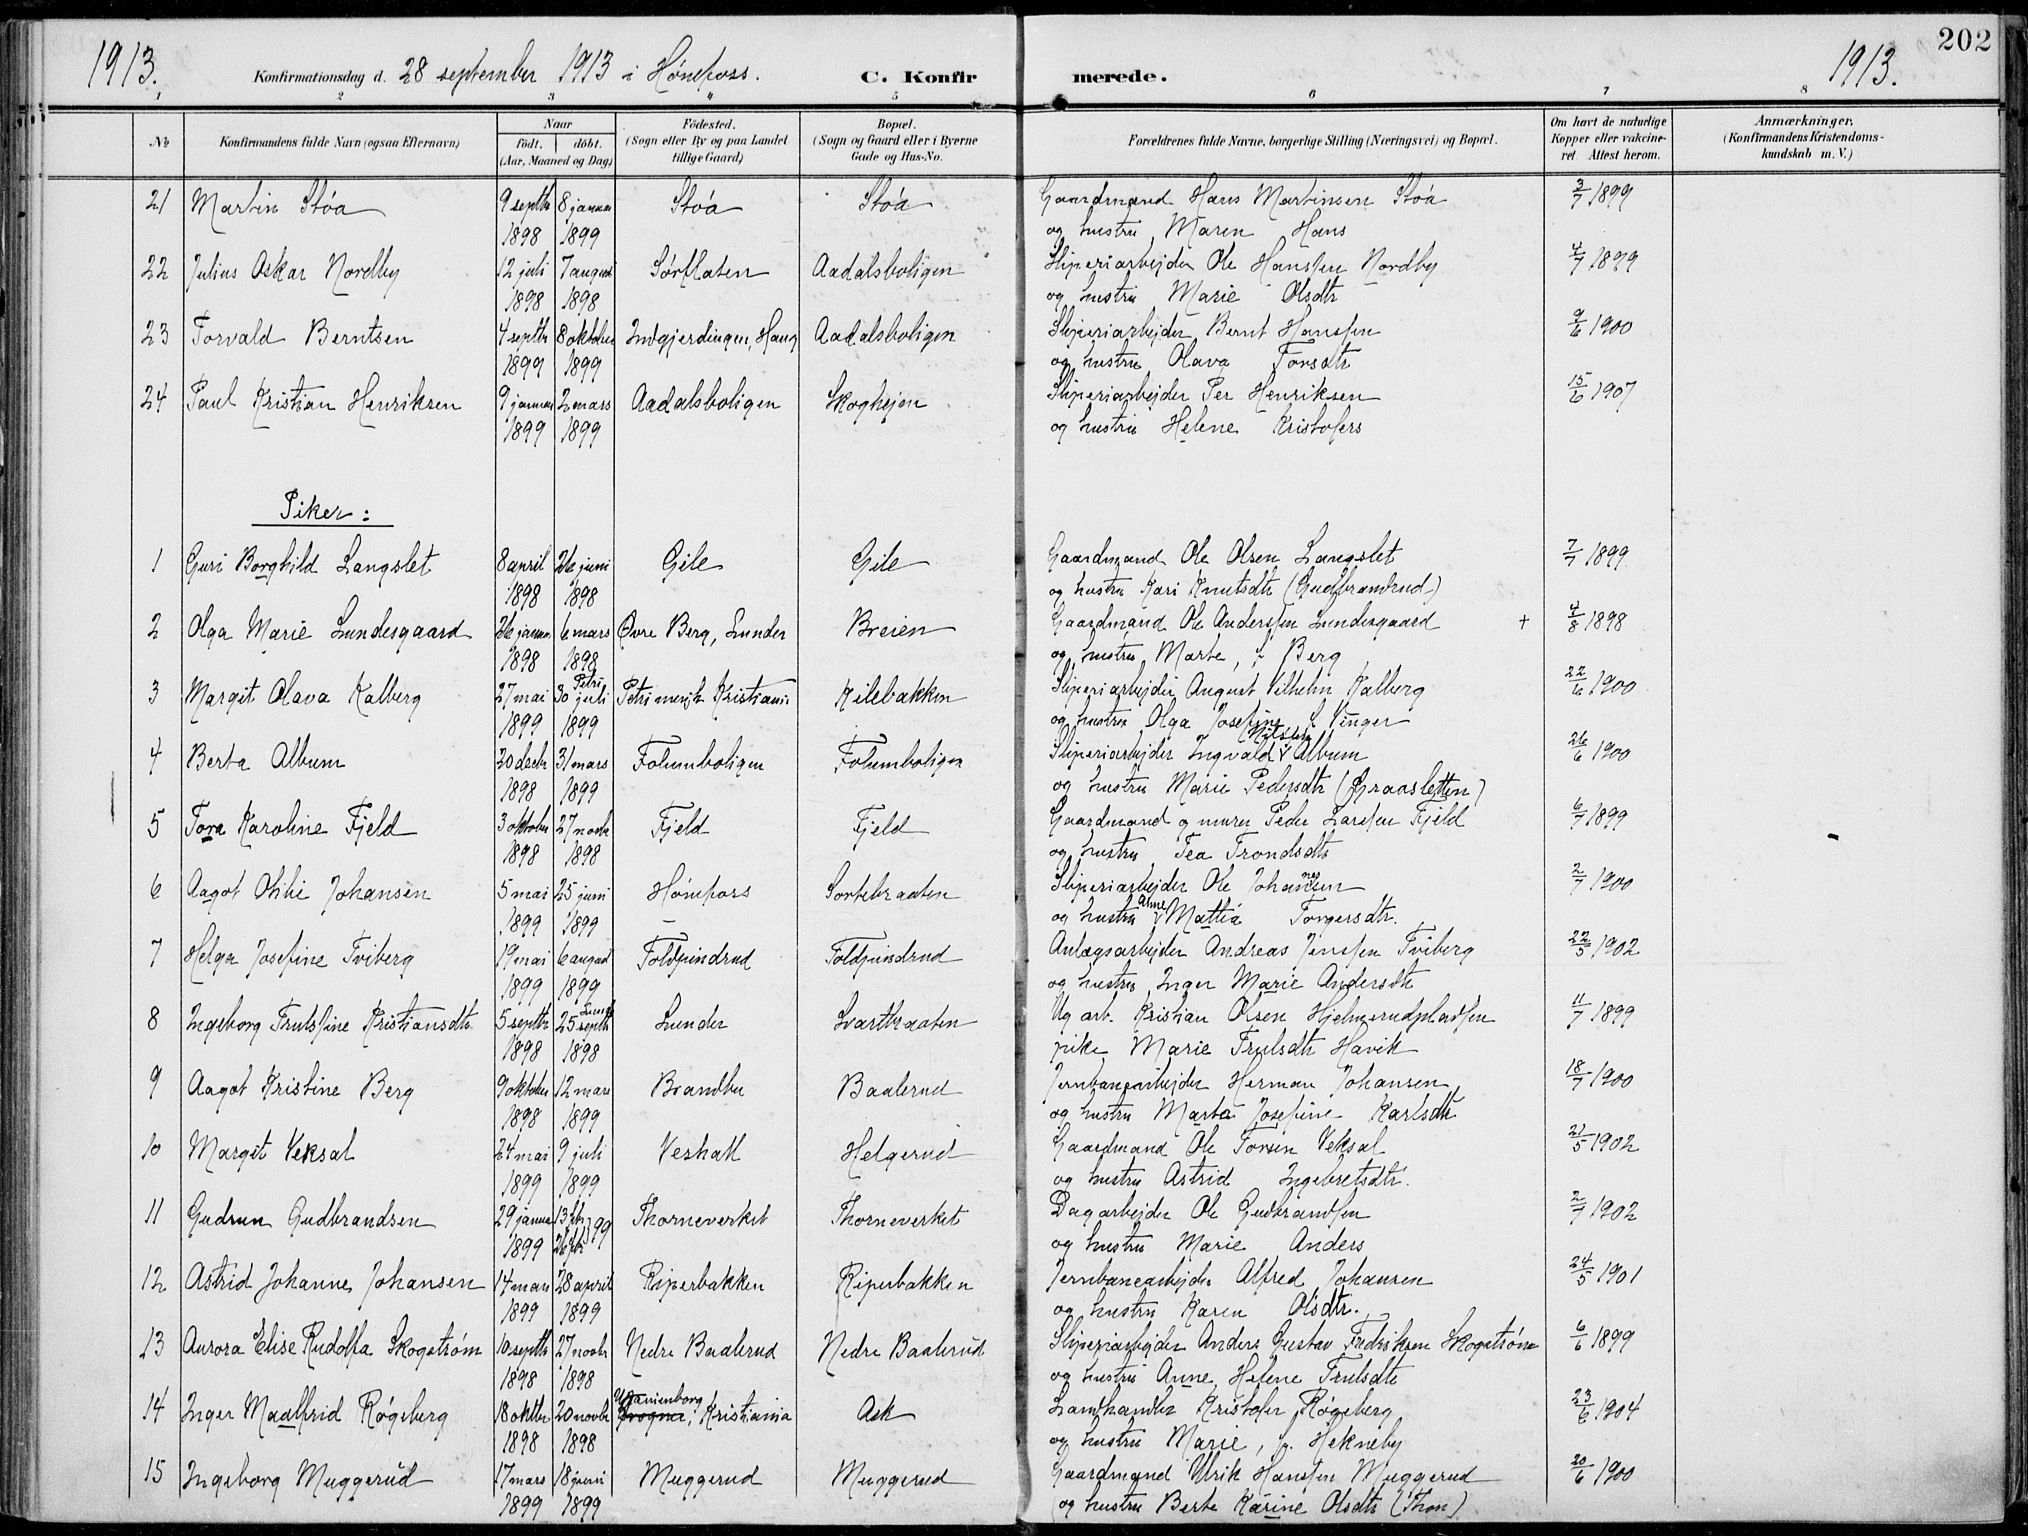 202
1913. Konfirmationsdag d. 28 september 1913 i Hønefoss. C. Konfirmerede. 1913.
1 2 3 4 5 6 7 8
№ Konfirmandens fulde Navn (ogsaa Efternavn) Naar født. døbt. (Aar, Maaned og Dag) Fødested. (Sogn eller By og paa Landet tillige Gaard) Bopæl. (Sogn og Gaard eller i Byerne Gade og Hus-No. Forældrenes fulde Navne, borgerlige Stilling (Næringsvei) og Bopæl. Om havt de naturlige Kopper eller vakcineret Attest herom. Anmærkninger. (Konfirmandens Kristendomskundskab m. V.)
21 Martin Stóa 9 septbr 8 januar Stóa Stóa Gaardmand Hans Martinsen Stóa 3/7 1899
1898 1899 og hustru Maren Hans
22 Julius Oskar Nordby 12 juli 7 august Sørflaten Aadalsboligen Sliperiarbejder Ole Hanssen Nordby 4/7 1899
1898 1898 og hustru Marie Olsdtr
23 Torvald Berntsen 4 septbr 8 oktober Indgjerdingen, Haug Aadalsboligen Sliperiarbejder Bernt Hanssen 9/6 1900
1899 1899 og hustru Olava Torsdtr
24 Paul Kristian Henriksen 9 januar 2 mars Aadalsboligen Skoghejen Sliperiarbejder Per Henriksen 15/6 1907
1899 1899 og hustru Helene Kristofers
Piker:
1 Guri Borghild Langslet 8 april 26 juni Gile Gile Gaardmand Ole Olsen Langslet 7/7 1899
1898 1898 og hustru Kari Knutsdtr (Gudbrandrud)
2 Olga Marie Lundesgaard 26 januar 6 mars Øvre Berg, Lunder Breien Gaardmand Ole Anderssen Lundesgaard + 4/8 1898
1898 1898 og hustru Marte, f Berg
3 Margit Olava Kalberg 27 mai 30 juli Petri Petri menigh Kristiania Kilebakken Sliperiarbejder August Vilhelm Kalberg 22/6 1900
1899 1899 og hustru Olga Josefine f Vinger
4 Berta Album 20 decbr 31 mars Folumboligen Folumboligen Sliperiarbejder Ingvald Nilssen Album 26/6 1900
1898 1899 og hustru Marie Pedersdtr (Graasletten)
5 Tora Karoline Fjeld 3 oktober 27 novbr Fjeld Fjeld Gaardmand og murer Peder Larssen Fjeld 6/7 1899
1898 1898 og hustru Tea Trondsdtr
6 Aagot Otilie Johansen 5 mai 25 juni Hønefoss Sortebraaten Sliperiarbejder Ole Johannesen 2/7 1900
1899 1899 og hustru Anne Mattia Torgersdtr.
7 Helga Josefine Tviberg 19 mai 6 august Foldjindrud Foldjindrud Anlægsarbejder Andreas Jenssen Tviberg 22/5 1902
1899 1899 og hustru Inger Marie Andersdtr
8 Ingeborg Trulsfine Kristiansdtr 5 septbr 25 septbr Lunder Svartbraaten Ug arb. Kristian Olsen Hjelmerudpladsen 11/7 1899
1898 1898 pike Marie Trulsdtr Havik
9 Aagot Kristine Berg 9 oktober 12 mars Brandbu Baalerud Jernbanearbejder Herman Johansen 18/7 1900
1898 1899 og hustru Marta Josefine Karlsdtr
10 Margit Veksal 24 mai 9 juli Veshall Helgerud Gaardmand Ole Torsen Veksal 21/5 1902
1899 1899 og hustru Astrid Ingebretsdtr.
11 Gudrun Gudbrandsen 29 januar 13 fbr 99 Thorneverket Thorneverket Dagarbejder Ole Gudbrandsen 2/7 1902
1899 26 fbr og hustru Marie Anders
12 Astrid Johanne Johansen 14 mars 28 april Riperbakken Riperbakken Jernbanearbejder Alfred Johansen 24/5 1901
1899 1899 og hustru Karen Olsdtr.
13 Aurora Elise Rudolfa Skogstrøm 10 septbr 27 novbr Nedre Baalerud Nedre Baalerud Sliperiarbejder Anders Gustav Fredriksen Skogstrøm 6/6 1899
1898 1898 og hustru Anne Helene Trulsdtr
14 Inger Maalfrid Røgeberg 18 oktbr 20 novbr Uranienborg Frogner, Kristiania Ask Landhandler Kristofer Røgeberg 23/6 1904
1898 1898 og hustru Marie, f. Hekneby
15 Ingeborg Muggerud 17 mars 18 juni Muggerud Muggerud Gaardmand Ulrik Hanssen Muggerud 20/6 1900
1899 1899 og hustru Berte Karine Olsdtr (Thon)